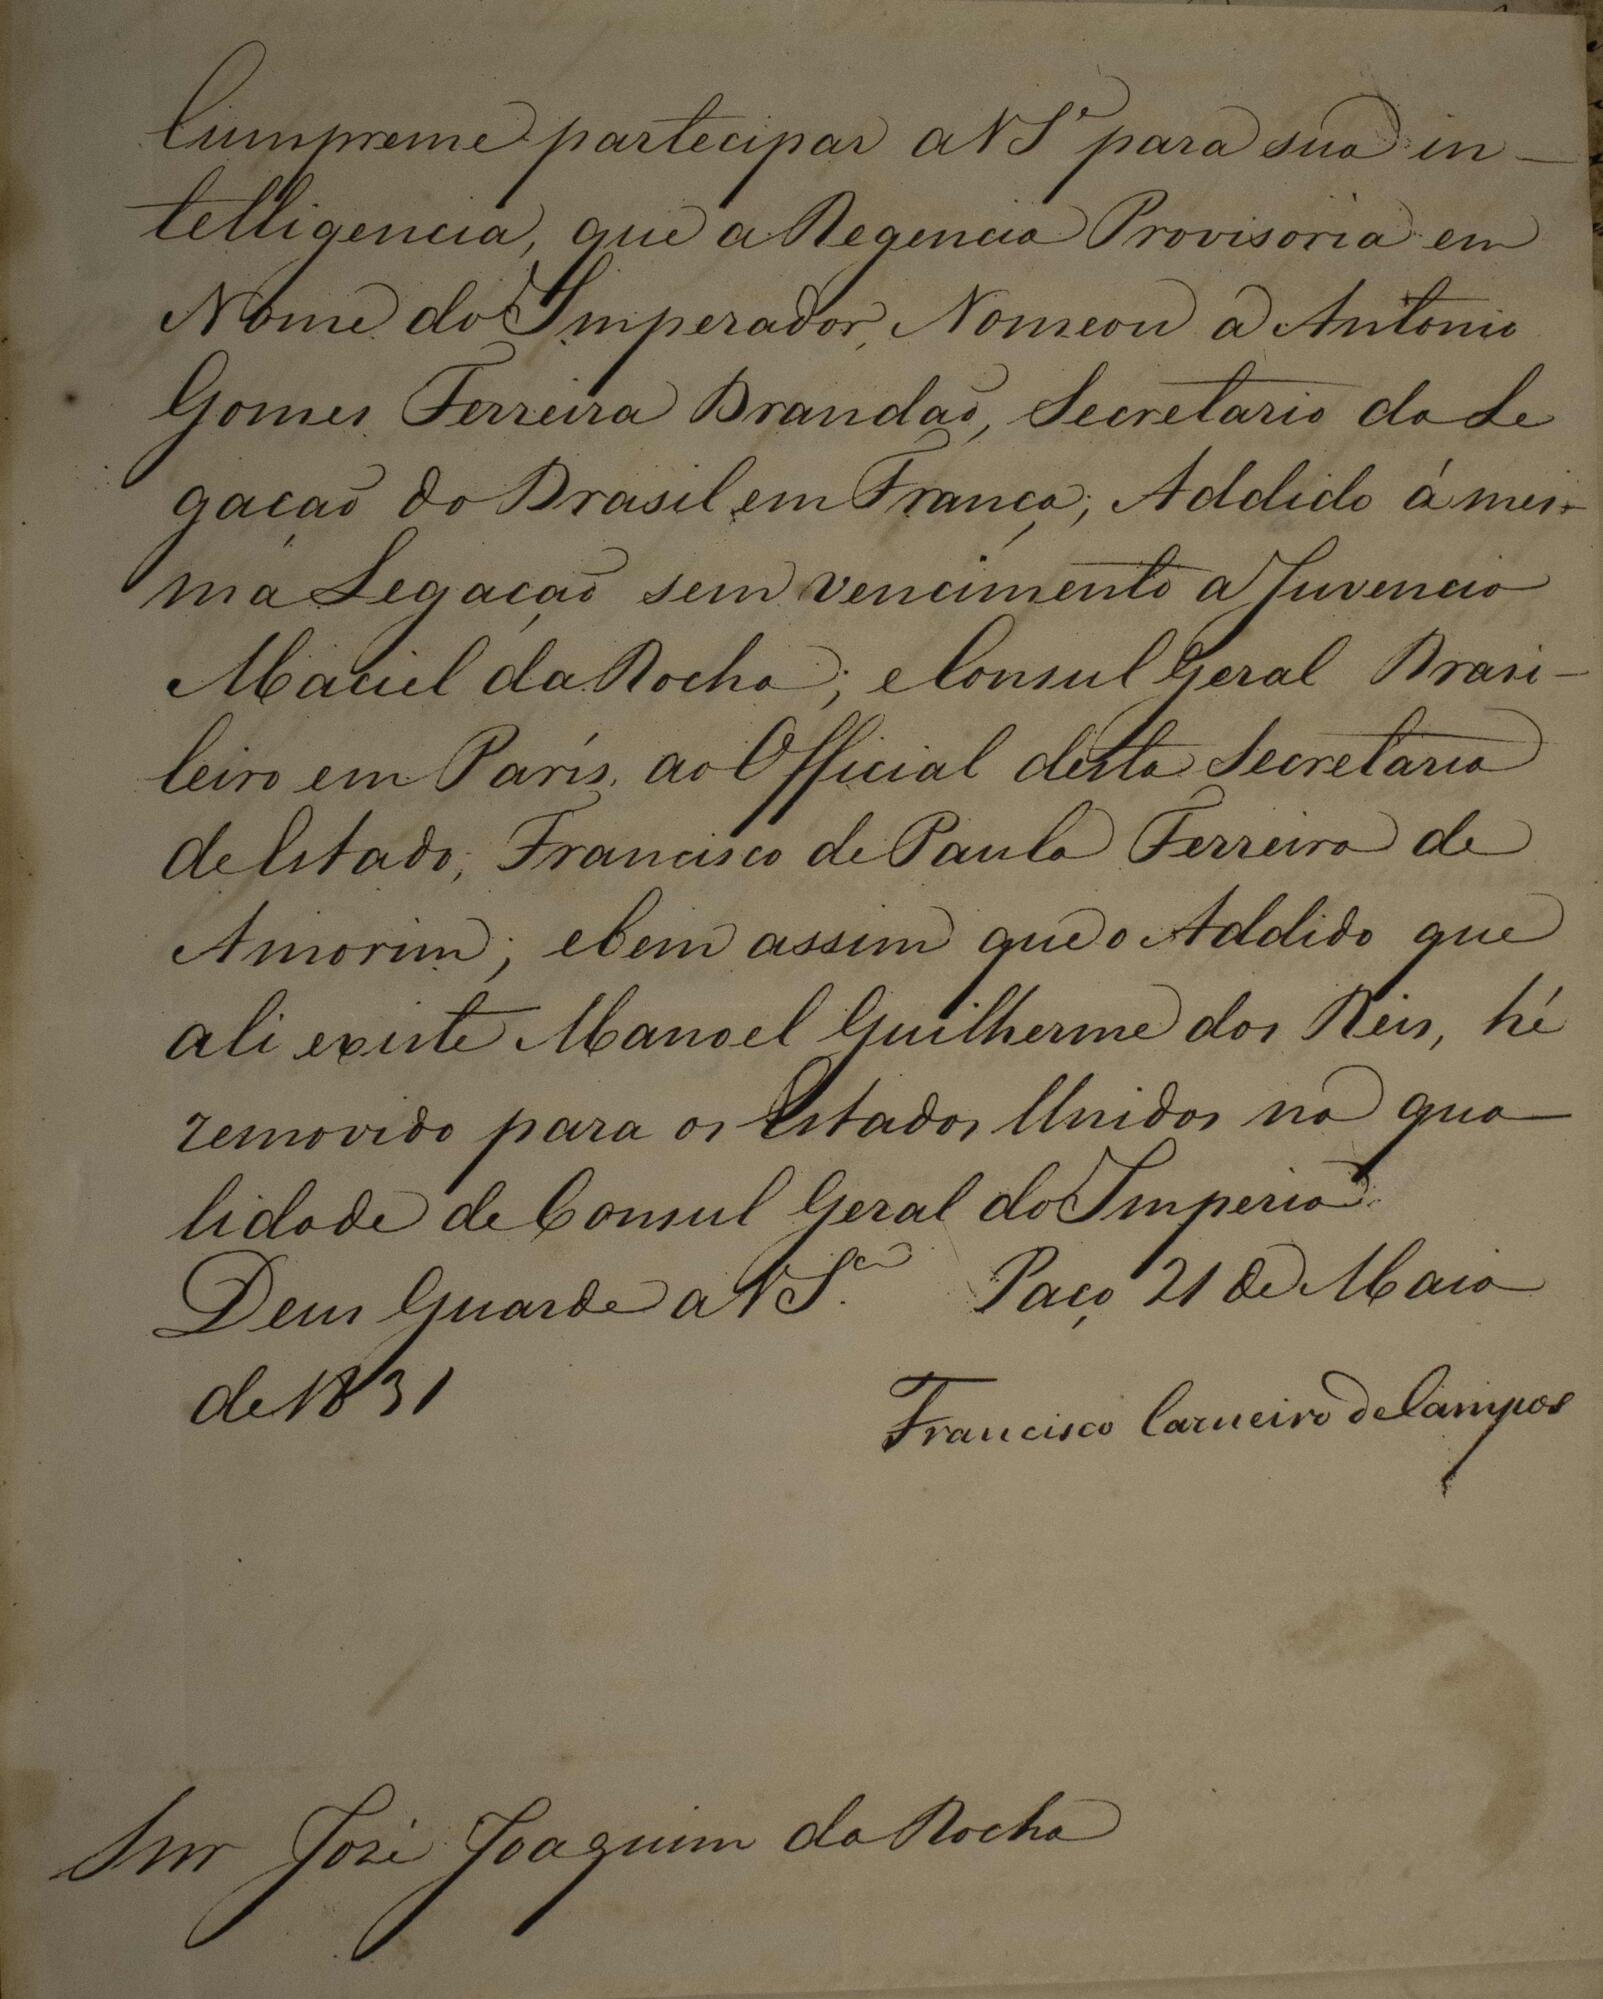 Cumpreme partecipar a V Sª para sua in-
telligencia, que a Regencia Provisoria em
Nome do Imperador, Nomeou a Antonio
Gomes Ferreira Brandaõ, Secretario da Le
gaçaõ do Brasil em França; Addido á mes-
ma Legaçaõ sem vencimento a Juvencio
Maciel da Rocha; e Consul Geral Brasi-
leiro em Paris, ao Official desta Secretaria
de Estado, Francisco de Paula Ferreira de
Amorim; e bem assim que o Addido que
ali existe Manoel Guilherme dos Reis, hé
removido para os Estados Unidos na qua-
lidade de Consul Geral do Imperio.
Deus Guarde a V Sª. Paço 21 de Maio
de 1831
Francisco Carneiro de Campos
Snr José Joaquim da Rocha